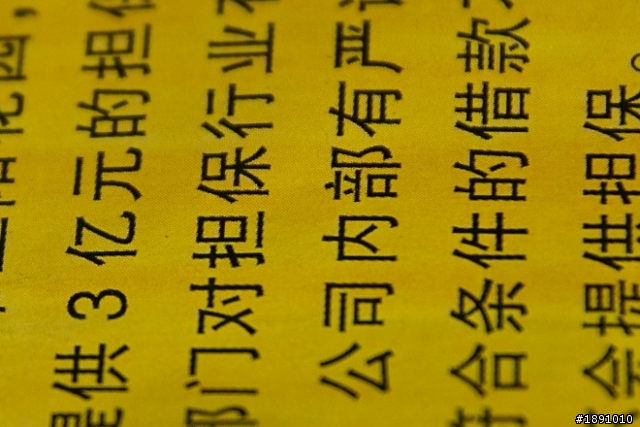 花园，
提供3亿元的担
部门对担保行业有
公司内部有严
符合条件的借款
会提供担保。
#1891010